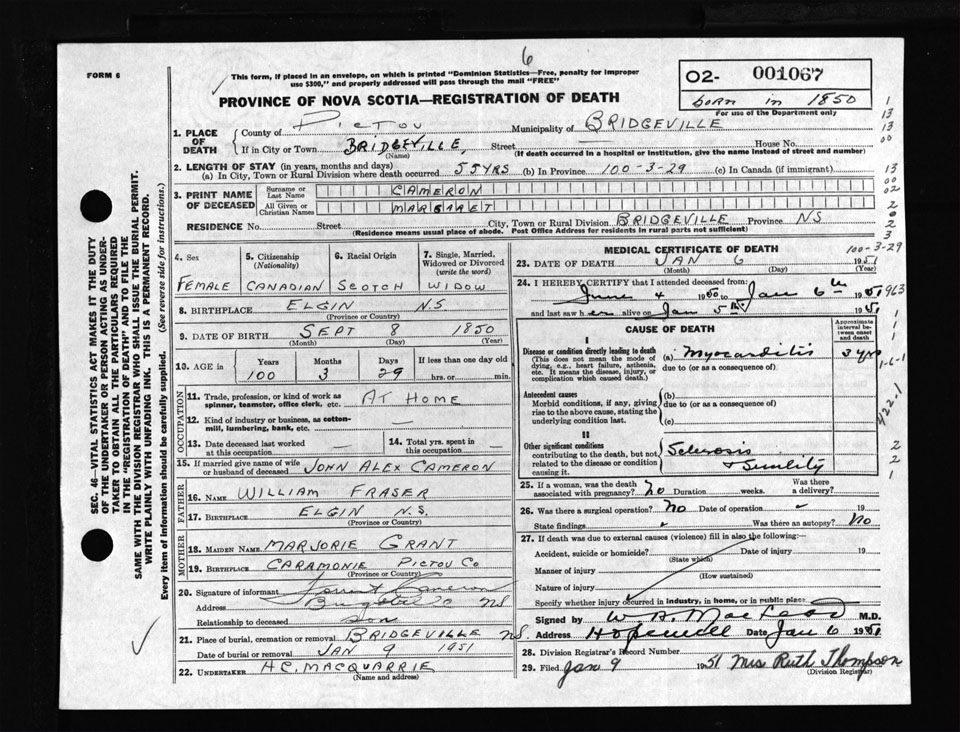 6
FORM 6
This form, if placed in an envelope, on which is printed "Dominion Statistics—Free, penalty for improper
use $300," and properly addressed will pass through the mail "FREE"
PROVINCE OF NOVA SCOTIA—REGISTRATION OF DEATH
O2- 001067
born in 1850
For use of the Department only
1. PLACE OF DEATH
County of PICTOU Municipality of BRIDGEVILLE
If in City or Town BRIDGEVILLE, Street House No.
(Name) (If death occurred in a hospital or institution, give the name instead of street and number)
2. LENGTH OF STAY (in years, months and days)
(a) In City, Town or Rural Division where death occurred 55 YRS (b) In Province 100-3-29 (c) In Canada (if immigrant)
3. PRINT NAME OF DECEASED
Surname or Last Name CAMERON
All Given or Christian Names MARGARET
RESIDENCE No. Street City, Town or Rural Division BRIDGEVILLE Province NS
(Residence means usual place of abode. Post Office Address for residents in rural parts not sufficient)
4. Sex
FEMALE
5. Citizenship
(Nationality)
CANADIAN
6. Racial Origin
SCOTCH
7. Single, Married,
Widowed or Divorced
(write the word)
WIDOW
8. BIRTHPLACE ELGIN N.S.
(Province or Country)
9. DATE OF BIRTH SEPT 8 1850
(Month) (Day) (Year)
10. AGE in
Years Months Days If less than one day old
100 3 29 hrs. or min.
OCCUPATION
11. Trade, profession, or kind of work as
spinner, teamster, office clerk, etc. AT HOME
12. Kind of industry or business, as cotton-
mill, lumbering, bank, etc. —
13. Date deceased last worked
at this occupation —
14. Total yrs. spent in
this occupation —
15. If married give name of wife
or husband of deceased JOHN ALEX CAMERON
FATHER
16. NAME WILLIAM FRASER
17. BIRTHPLACE ELGIN N.S.
(Province or Country)
MOTHER
18. MAIDEN NAME MARJORIE GRANT
19. BIRTHPLACE CARAMONIE PICTOU CO
(Province or Country)
20. Signature of informant Cameron
Address NS
Relationship to deceased son
21. Place of burial, cremation or removal BRIDGEVILLE NS.
Date of burial or removal JAN 9 1951
22. UNDERTAKER H.C. MACQUARRIE
(Name and address)
MEDICAL CERTIFICATE OF DEATH
100-3-29
23. DATE OF DEATH JAN 6 1951
(Month) (Day) (Year)
24. I HEREBY CERTIFY that I attended deceased from:
June 4 1950 to Jan 6th 1951
and last saw her alive on Jan 5th 1951
CAUSE OF DEATH
Approximate
interval be-
tween onset
and death
I
Disease or condition directly leading to death
(This does not mean the mode of
dying, e.g., heart failure, asthenia,
etc. It means the disease, injury, or
complication which caused death.)
(a) Myocarditis 3 yrs
due to (or as a consequence of)
Antecedent causes
Morbid conditions, if any, giving
rise to the above cause, stating the
underlying condition last.
(b)
due to (or as a consequence of)
(c)
II
Other significant conditions
contributing to the death, but not
related to the disease or condition
causing it.
Sclerosis
+ Senility
25. If a woman, was the death
associated with pregnancy? No Duration weeks. Was there
a delivery?
26. Was there a surgical operation? No Date of operation
State findings Was there an autopsy? No
27. If death was due to external causes (violence) fill in also the following:
Accident, suicide or homicide? Date of injury 19
(State which)
Manner of injury
(How sustained)
Nature of injury
Specify whether injury occurred in industry, in home, or in public place
Signed by W A MacLeod M.D.
Address Hopewell Date Jan 6 1951
28. Division Registrar's Record Number
29. Filed Jan 9 1951 Mrs Ruth Thompson
(Division Registrar)
SEC. 46—VITAL STATISTICS ACT MAKES IT THE DUTY
OF THE UNDERTAKER OR PERSON ACTING AS UNDER-
TAKER TO OBTAIN ALL THE PARTICULARS REQUIRED
IN THE "REGISTRATION OF DEATH" AND TO FILE THE
SAME WITH THE DIVISION REGISTRAR WHO SHALL ISSUE THE BURIAL PERMIT.
WRITE PLAINLY WITH UNFADING INK. THIS IS A PERMANENT RECORD.
Every item of information should be carefully supplied. (See reverse side for instructions.)